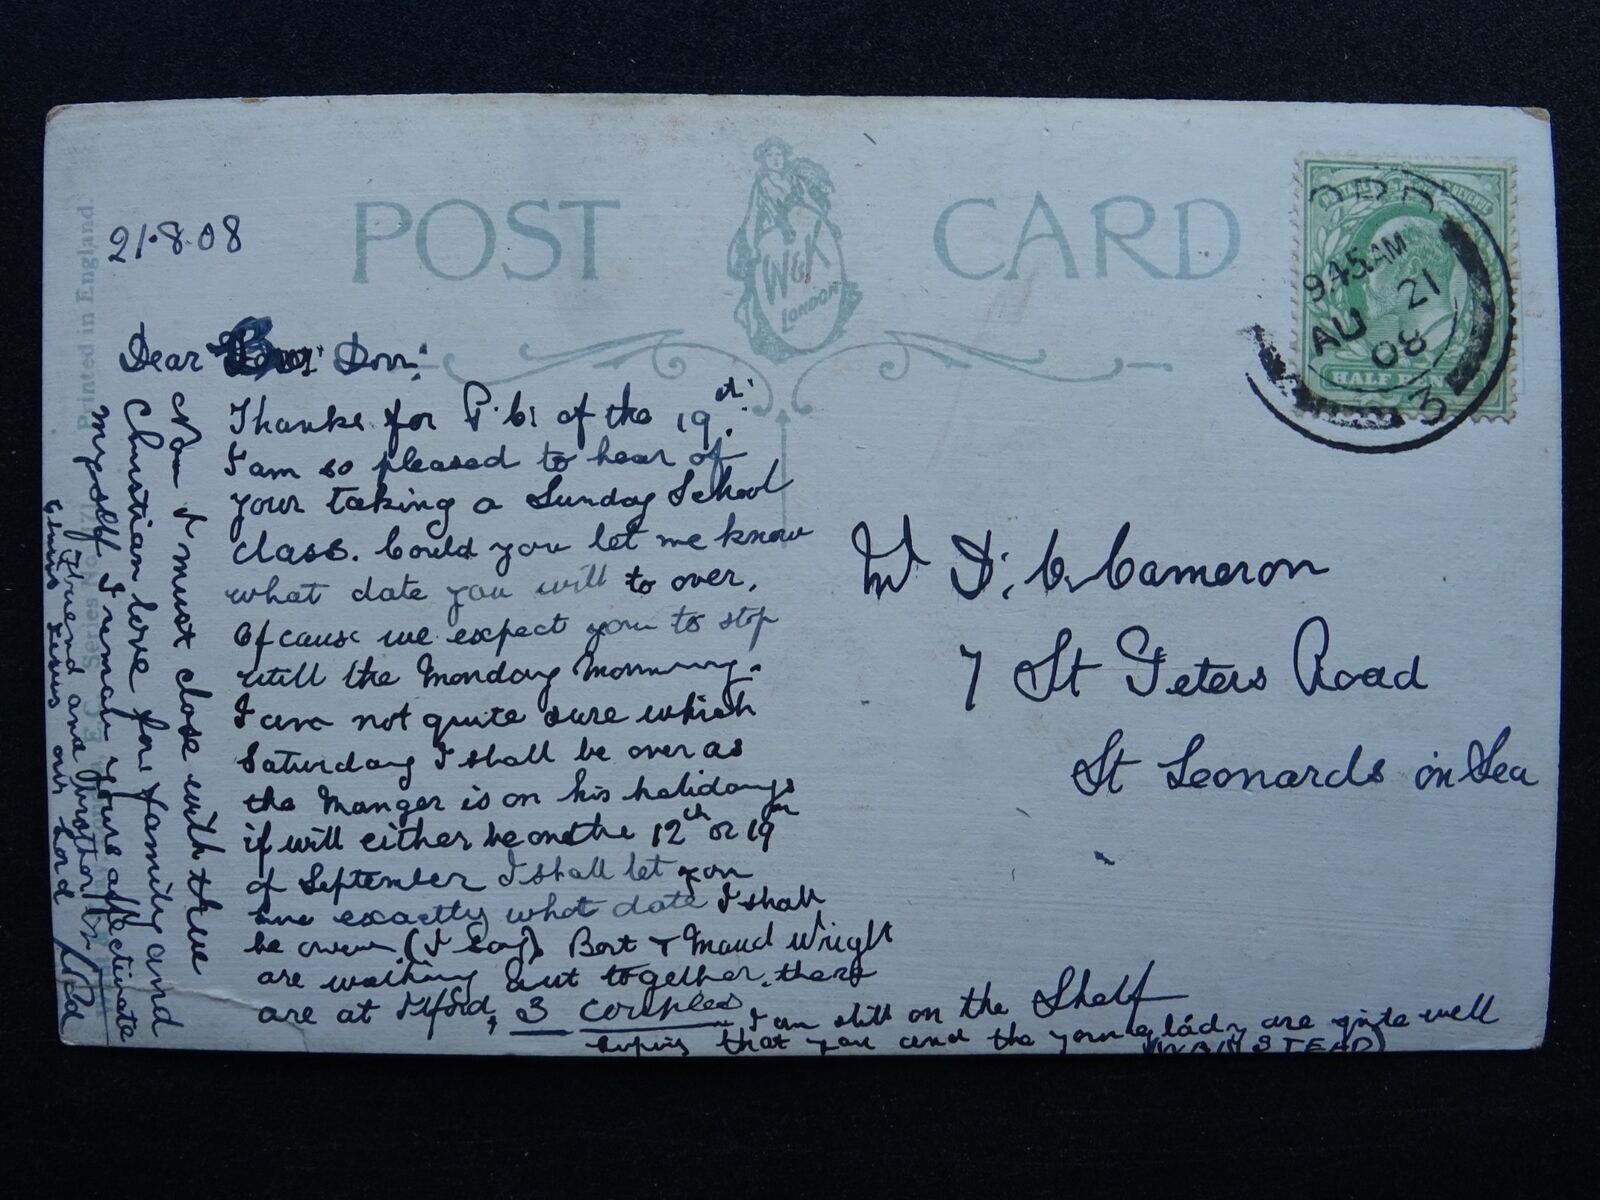 POST CARD
W&K
LONDON
Printed in England
Series No.
HALF PENNY
9.45 AM
AU 21
08
3
21.8.08
Dear Don:
Thanks for P.C. of the 19th.
I am so pleased to hear of
your taking a Sunday School
class. Could you let me know
what date you will to over.
Of cause we expect you to stop
till the Monday Morning.
I am not quite sure which
Saturday I shall be over as
the Manger is on his holidays
if will either be on the 12th or 19th
of September I shall let you
know exactly what date I shall
be over (I say) Bert & Maud Wright
are walking out together. there
are at Ilford, 3 couples
I am still on the Shelf
hoping that you and the young lady are quite well
(WANSTEAD)
Now I must close with true
Christian love for family and
myself I remain yours affectinate
friend and brother in
Christ Jesus our Lord
Mr D. C. Cameron
7 St Peters Road
St Leonards on Sea